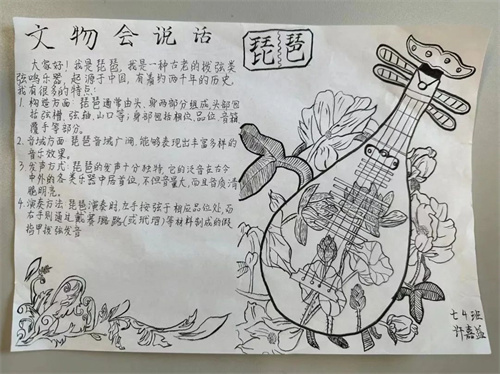 文物会说话
琵琶
大家好！我是琵琶，我是一种古老的拨弦类
弦鸣乐器，起源于中国，有着约两千年的历史，
我有很多的特点：
1. 构造方面 琵琶通常由头、身两部分组成，头部包
括弦槽，弦轴，山口等；身部包括相位，品位，音箱
覆手等部分。
2. 音域方面 琵琶音域广阔，能够表现出丰富多样的
音乐效果。
3. 发声方式 琵琶的发声十分独特，它的泛音在古今
中外的各类乐器中居首位，不但音量大，而且音质清
脆明亮。
4. 演奏方法 琵琶演奏时，左手按弦于相应品位处，而
右手则通过戴赛璐璐(或玳瑁)等材料制成的假
指甲拨弦发音
七4班
许嘉益